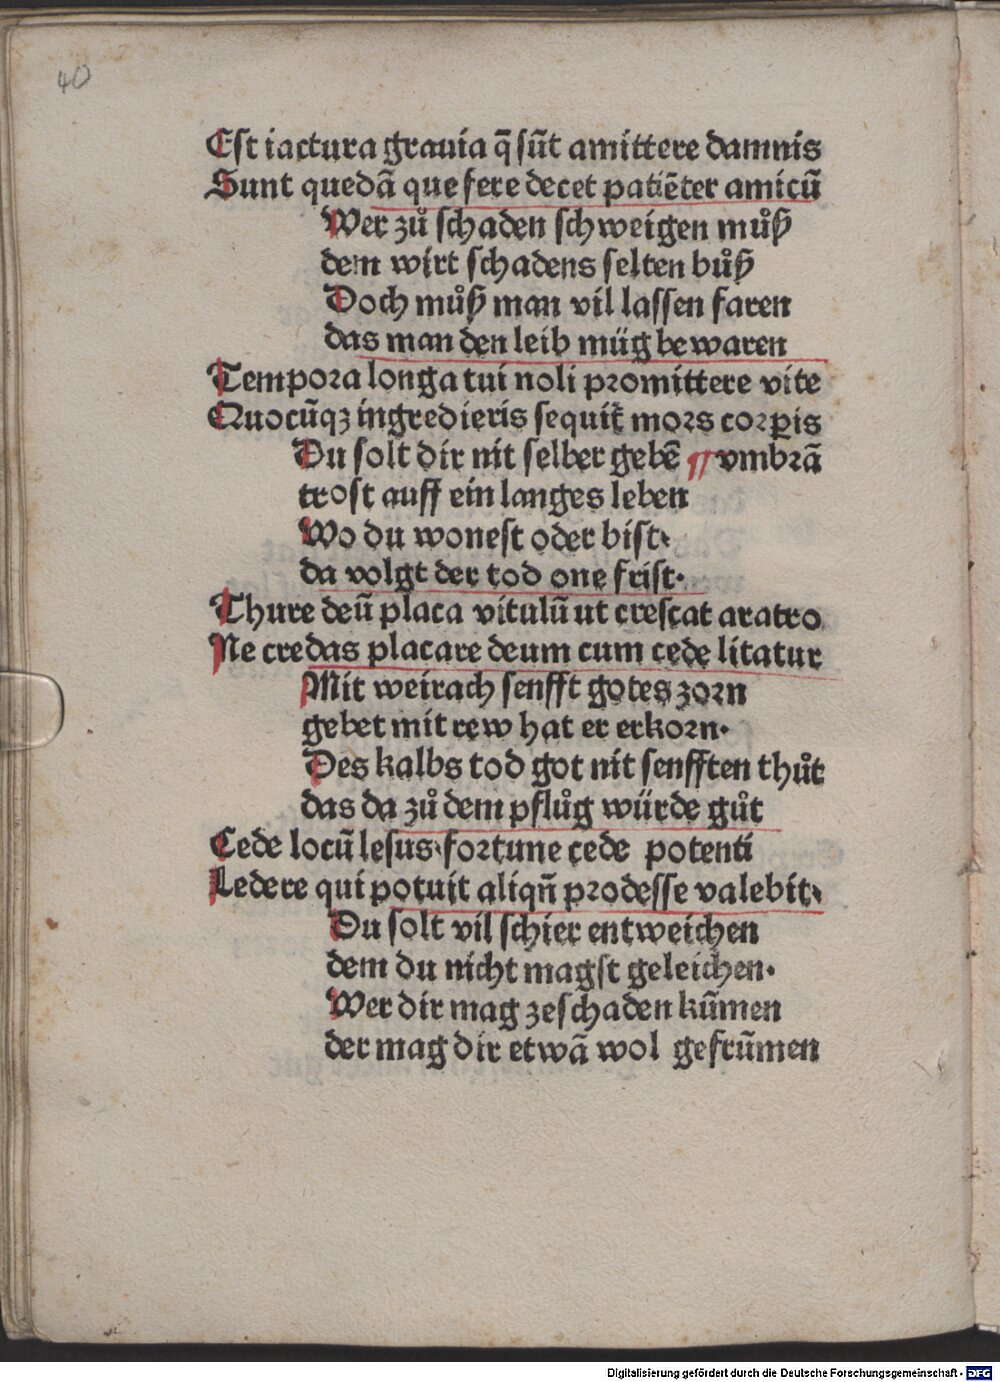 40
Est iactura grauia q̄ sūt amittere damnis
Sunt quedā que fere decet patiēter amicū
Wer zů schaden schweigen můß
dem wirt schadens selten bůß
Doch můß man vil lassen faren
das man den leib müg bewaren
Tempora longa tui noli promittere vite
Quocūqꝫ ingredieris sequit᷑ mors corꝑis
Du solt dir nit selber gebē ¶ vmbrā
trost auff ein langes leben
Wo du wonest oder bist·
da volgt der tod one frist·
Thure deū placa vitulū ut crescat aratro
Ne credas placare deum cum cede litatur
Mit weirach senfft gotes zorn
gebet mit rew hat er erkorn·
Des kalbs tod got nit senfften thůt
das da zů dem pflůg würde gůt
Cede locū lesus·fortune cede potenti
Ledere qui potuit aliqn̄ prodesse valebit·
Du solt vil schier entweichen
dem du nicht magst geleichen·
Wer dir mag zeschaden kūmen
der mag dir etwā wol gefrūmen
Digitalisierung gefördert durch die Deutsche Forschungsgemeinschaft - DFG